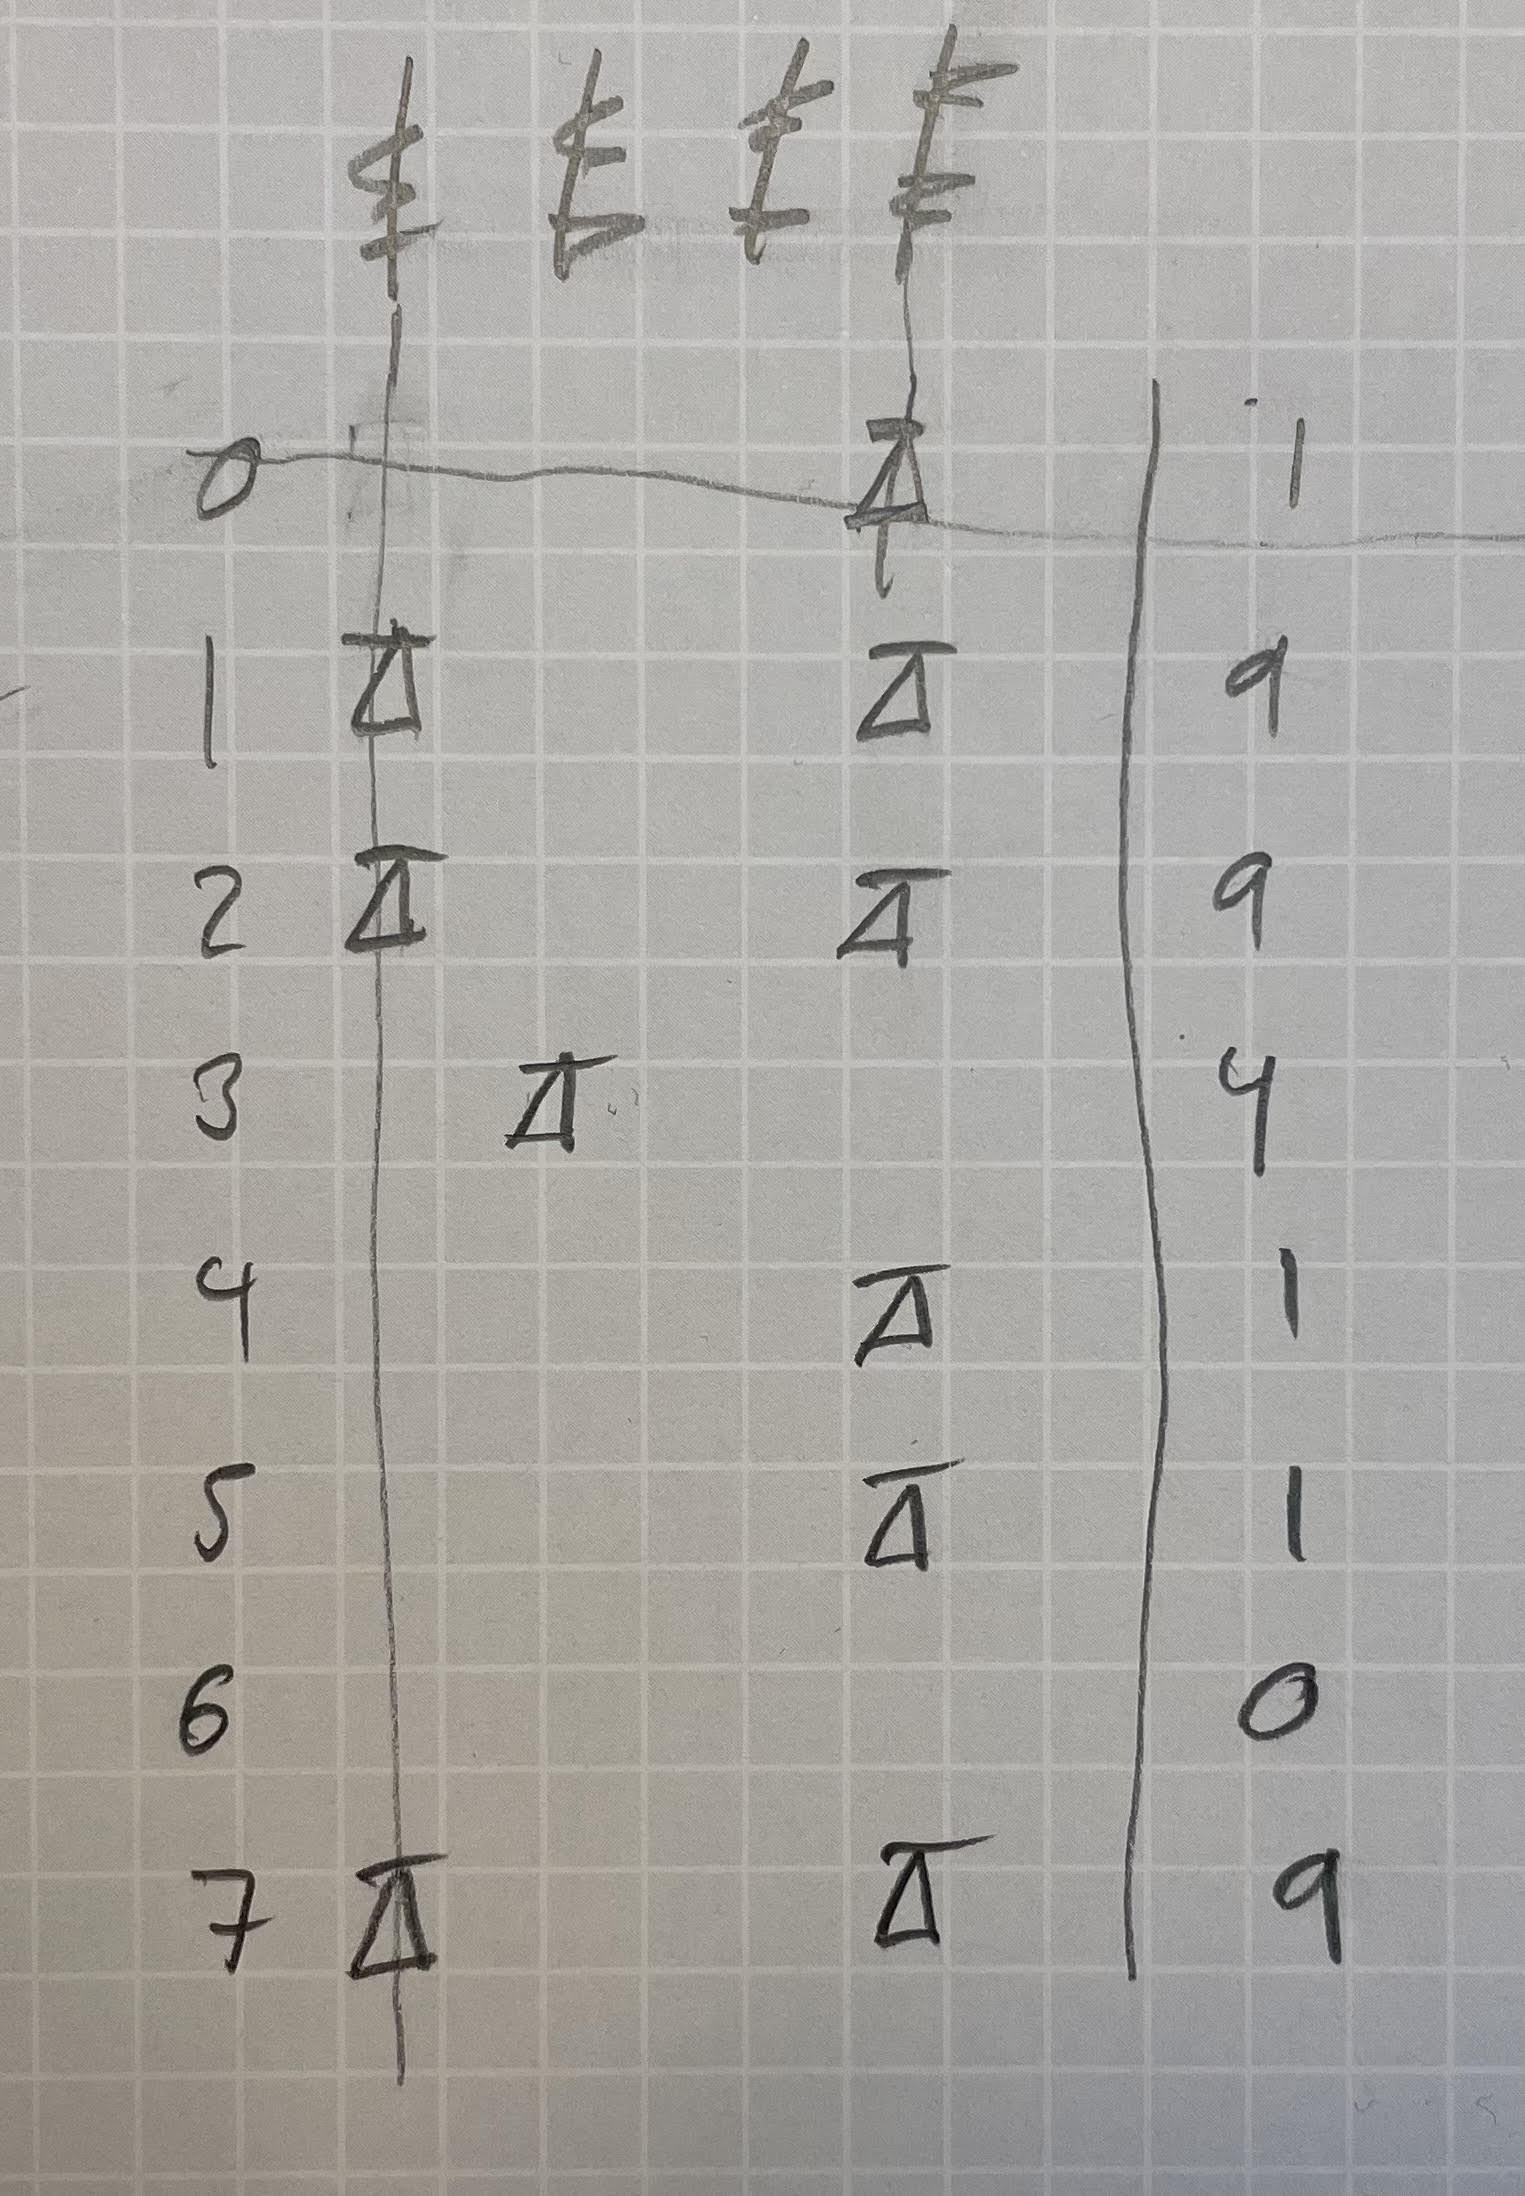 0 1
1 9
2 9
3 4
4 1
5 1
6 0
7 9